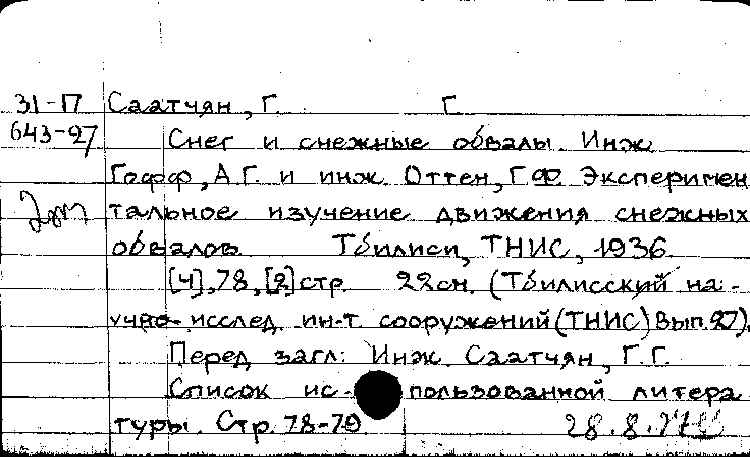 31-П Саатчян, Г. Г.
643-27 Снег и снежные обвалы. Инж
Гофф, А.Г. и инж. Оттен, Г.Ф. Эксперимен
тальное изучение движения снежных
обвалов Тбилиси, ТНИС, 1936.
[4], 78, [2] стр. 22 см. (Тбилисский на-
учно-исслед. ин-т сооружений (ТНИС) Вып. 27).
Перед загл: Инж. Саатчян, Г.Г.
Список ис- пользованной литера
туры. Стр. 78-79.
28.8.